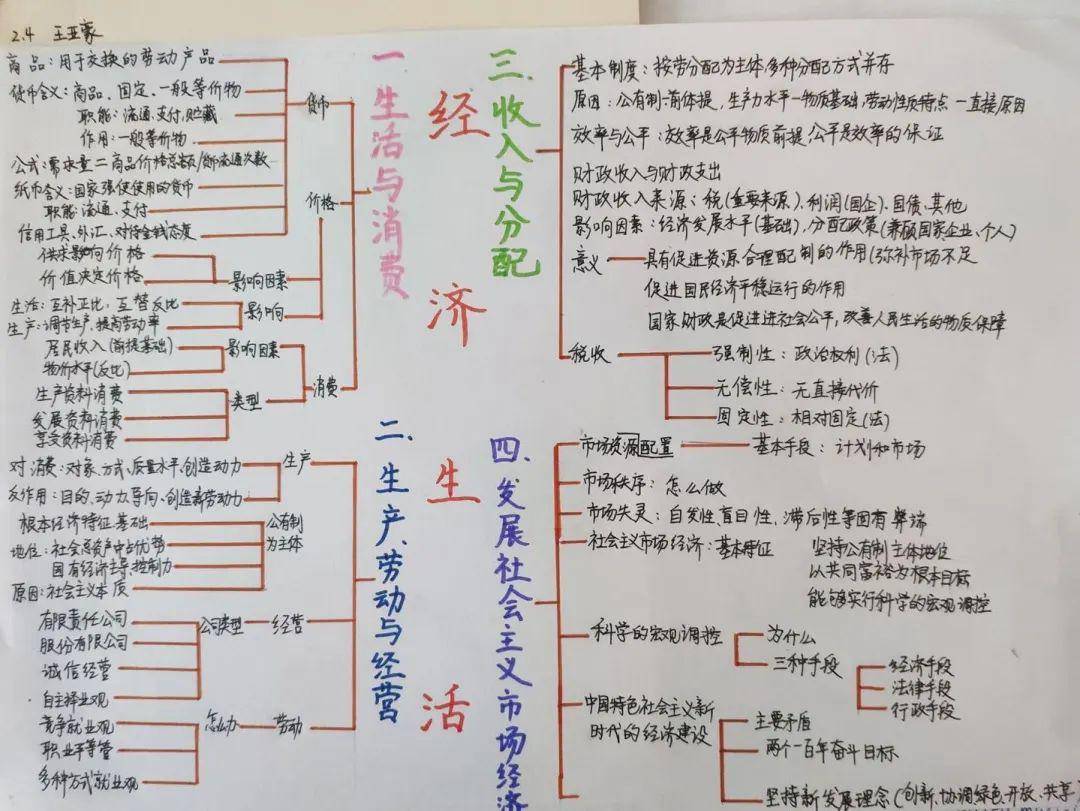 2.4 王亚豪
经济生活
一.生活与消费
货币
商品:用于交换的劳动产品
货币含义:商品、固定、一般等价物
职能:流通,支付,贮藏
作用:一般等价物
公式:需求量=商品价格总额/货币流通次数
纸币含义:国家强使使用的货币
职能:流通、支付
信用工具、外汇、对待金钱态度
价格
影响因素
供求影响价格
价值决定价格
影响
生活:互补正比,互替反比
生产:调节生产,提高劳动率
消费
影响因素
居民收入(前提基础)
物价水平(反比)
类型
生产资料消费
发展资料消费
享受资料消费
二、生产、劳动与经营
生产
对消费:对象、方式、质量水平、创造动力
反作用:目的、动力、导向、创造新劳动力
公有制
为主体
根本经济特征、基础
地位:社会总资产中占优势
国有经济主导、控制力
原因:社会主义本质
经营
公司类型
有限责任公司
股份有限公司
诚信经营
劳动
怎么办
自主择业观
竞争就业观
职业平等管
多种方式就业观
三.收入与分配
基本制度:按劳分配为主体,多种分配方式并存
原因:公有制-前体提,生产力水平-物质基础,劳动性质特点-直接原因
效率与公平:效率是公平物质前提,公平是效率的保证
财政收入与财政支出
财政收入来源:税(重要来源)、利润(国企)、国债、其他
影响因素:经济发展水平(基础)、分配政策(兼顾国家企业、个人)
意义 具有促进资源合理配制的作用(弥补市场不足
促进国民经济平稳运行的作用
国家财政是促进进社会公平,改善人民生活的物质保障
税收
强制性:政治权利(法)
无偿性:无直接代价
固定性:相对固定(法)
四、发展社会主义市场经济
市场资源配置 基本手段:计划和市场
市场秩序:怎么做
市场失灵:自发性,盲目性,滞后性等固有弊端
社会主义市场经济:基本特征 坚持公有制主体地位
以共同富裕为根本目标
能够实行科学的宏观调控
科学的宏观调控
为什么
三种手段
经济手段
法律手段
行政手段
中国特色社会主义新
时代的经济建设
主要矛盾
两个一百年奋斗目标
坚持新发展理念(创新、协调绿色开放、共享